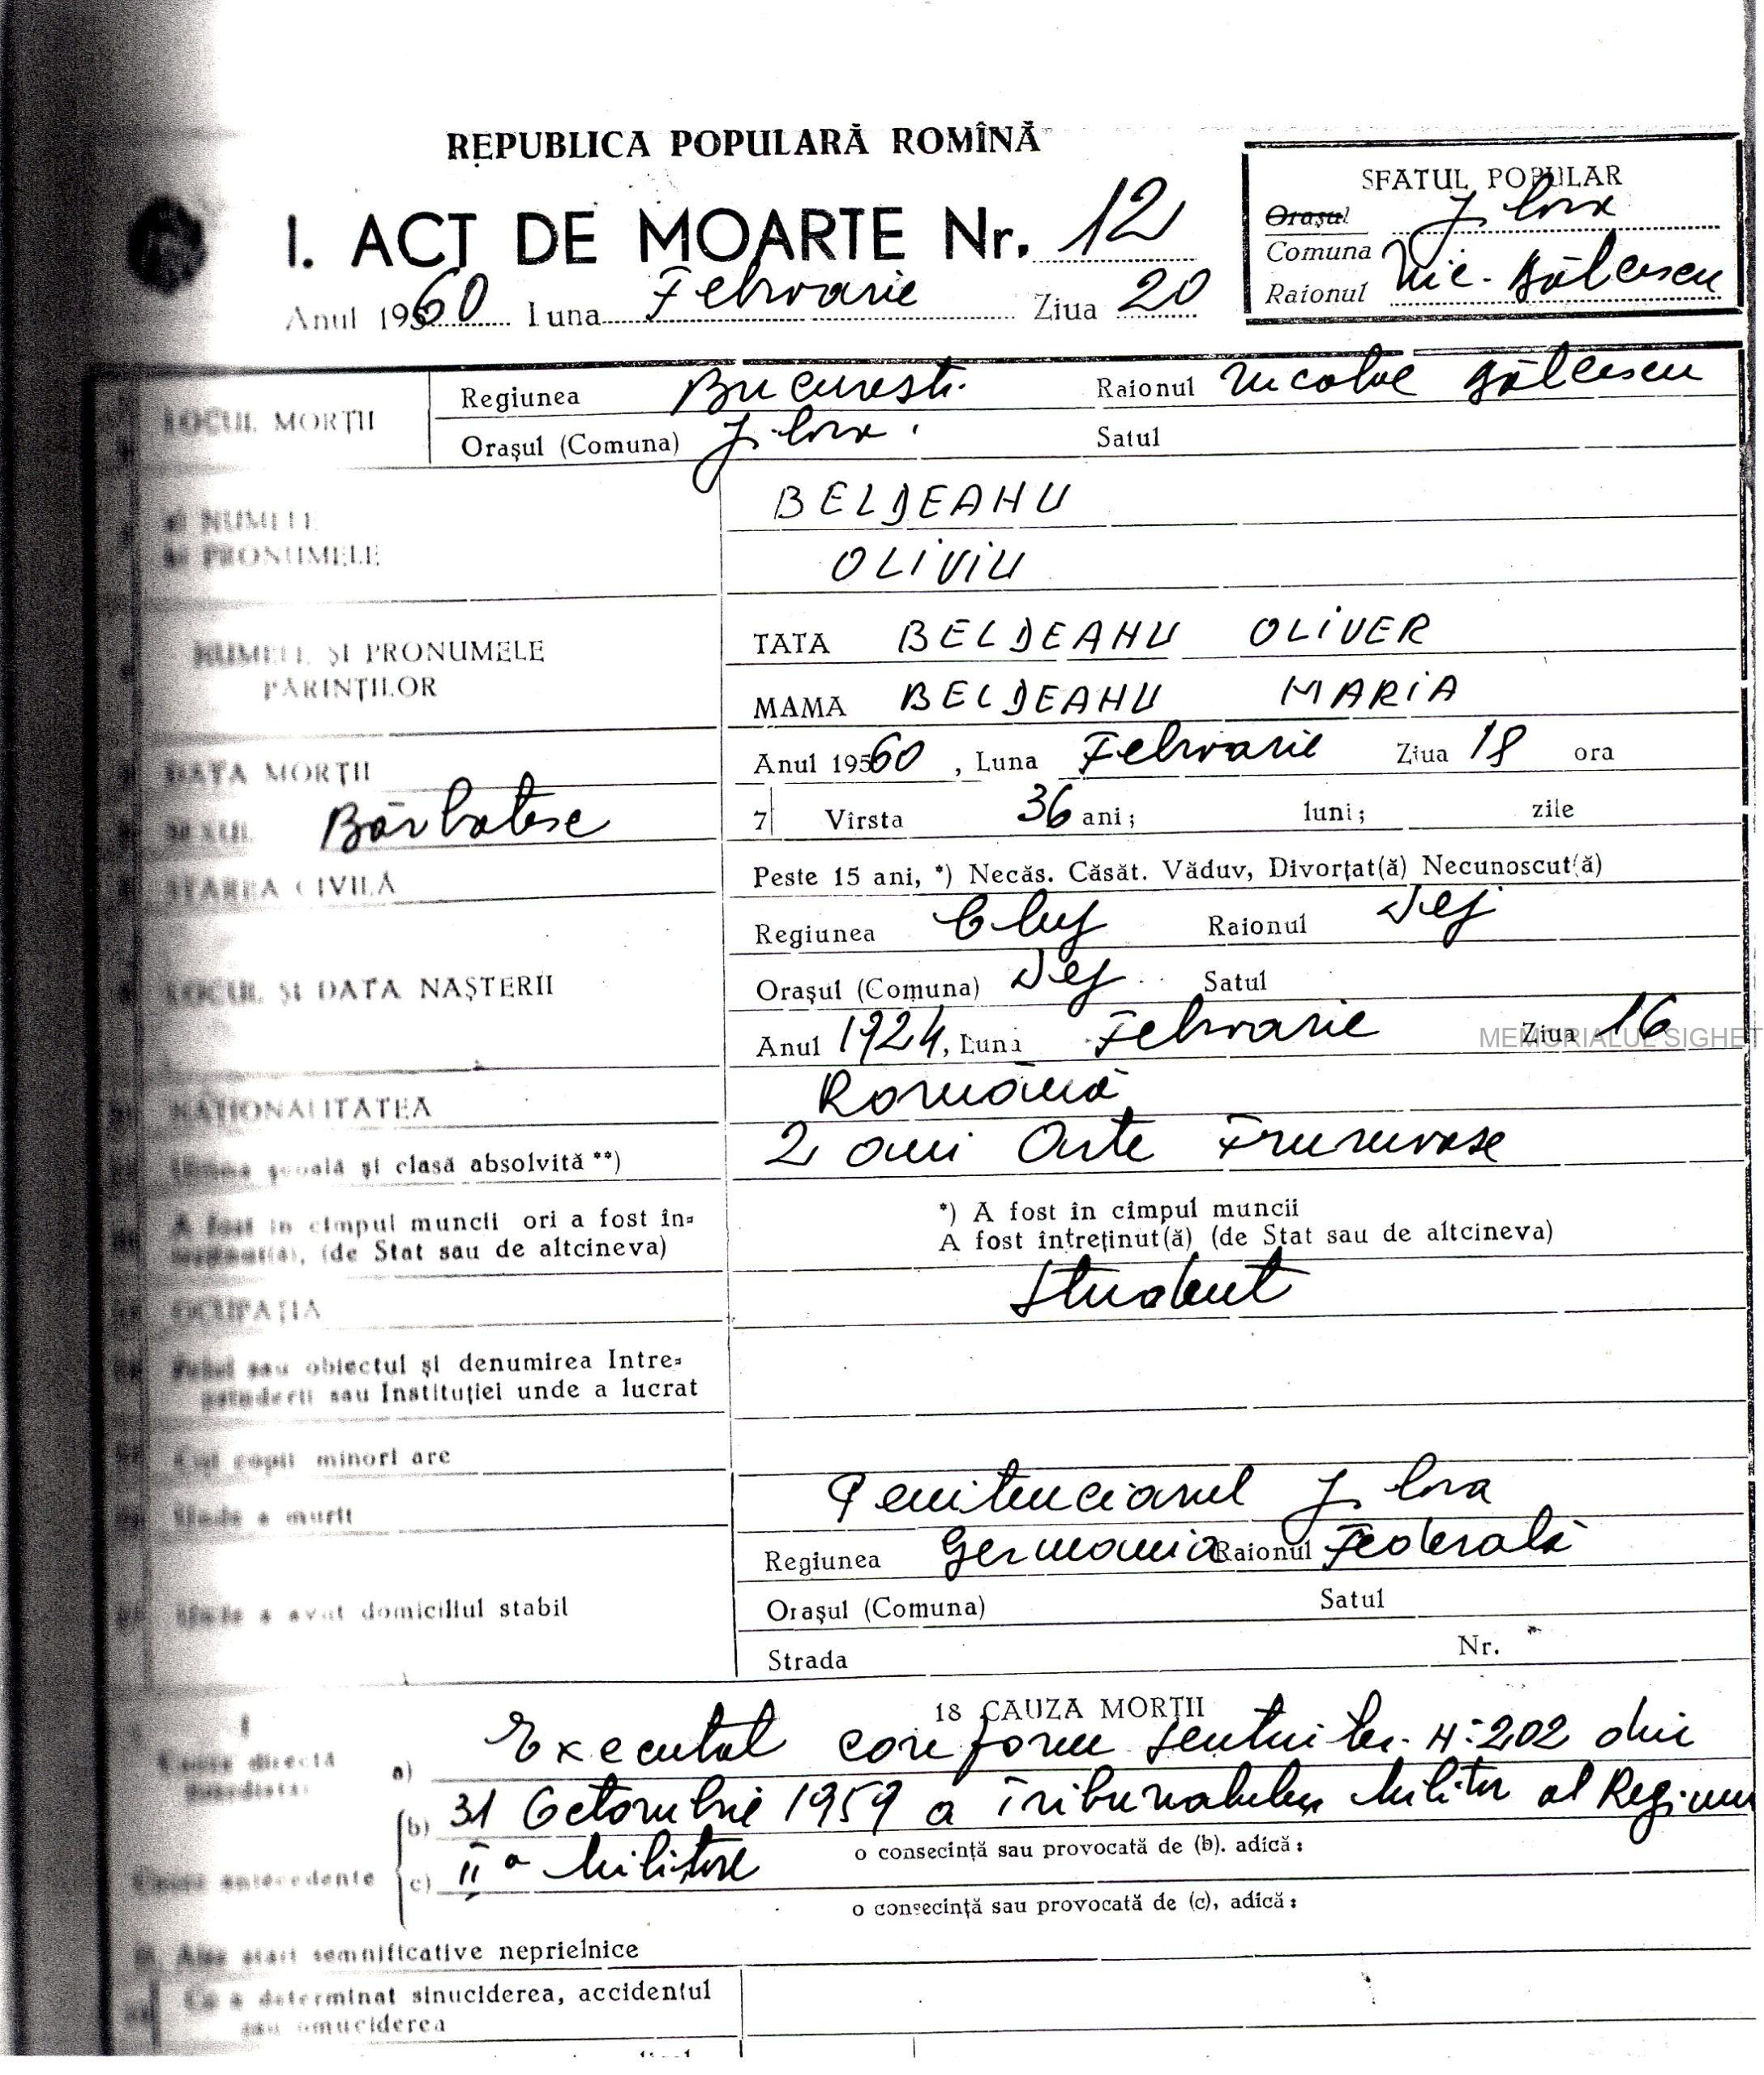 REPUBLICA POPULARĂ ROMÎNĂ
SFATUL POPULAR
I. ACT DE MOARTE Nr. 12
Orașul Jilava
Comuna
Raionul Nic. Bălcescu
Anul 1960 Luna Februarie Ziua 20
LOCUL MORȚII
Regiunea București Raionul Nicolae Bălcescu
Orașul (Comuna) Jilava Satul
a) NUMELE BELDEANU
b) PRONUMELE OLIVIU
NUMELE ȘI PRONUMELE PĂRINȚILOR
TATA BELDEANU OLIVER
MAMA BELDEANU MARIA
DATA MORȚII Anul 1960, Luna Februarie Ziua 18 ora
SEXUL Bărbătesc 7 Vîrsta 36 ani; luni; zile
STAREA CIVILĂ Peste 15 ani, *) Necăs. Căsăt. Văduv, Divorțat(ă) Necunoscut(ă)
LOCUL ȘI DATA NAȘTERII
Regiunea Cluj Raionul Dej
Orașul (Comuna) Dej Satul
Anul 1924, Luna Februarie Ziua 16
MEMORIALUL SIGHET
NAȚIONALITATEA Română
Ultima școală și clasă absolvită **) 2 ani Arte Frumoase
A fost în cîmpul muncii ori a fost în-
(de Stat sau de altcineva)
*) A fost în cîmpul muncii
A fost întreținut(ă) (de Stat sau de altcineva)
OCUPAȚIA Student
Felul sau obiectul și denumirea Intre-
prinderii sau Instituției unde a lucrat
Cîți copii minori are
Unde a murit Penitenciarul Jilava
Unde a avut domiciliul stabil
Regiunea Germania Raionul Federală
Orașul (Comuna) Satul
Strada Nr.
18 CAUZA MORȚII
Cauza directă
a) Executat conform sentinței Nr. 202 din
(b) 31 Octombrie 1959 a Tribunalului Militar al Regiunii
o consecință sau provocată de (b). adică:
Cauze antecedente
c) II a Militare
o consecință sau provocată de (c), adică:
Alte stări semnificative neprielnice
Ce a determinat sinuciderea, accidentul
sau omuciderea